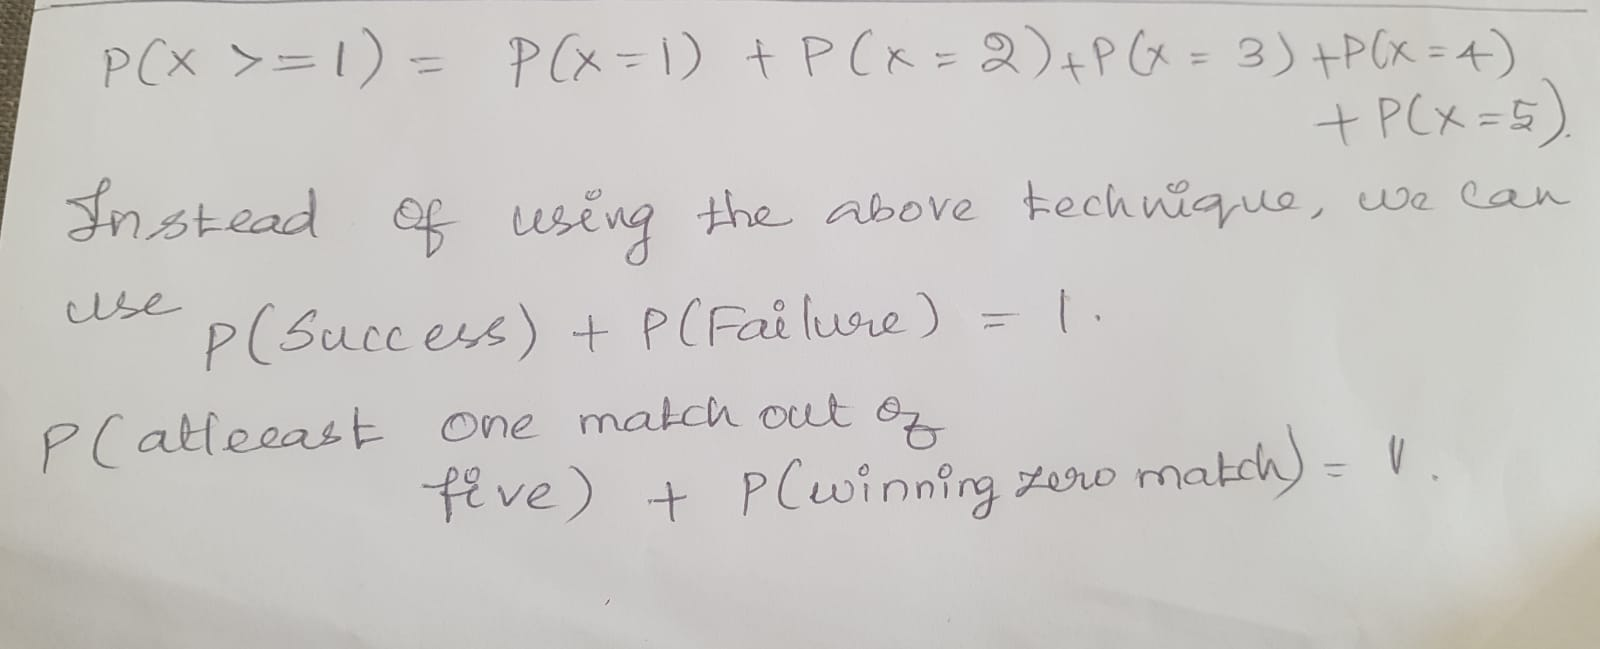 P(x >= 1) = P(x = 1) + P(x = 2) + P(x = 3) + P(x = 4)
+ P(x = 5).
Instead of using the above technique, we can
use P(Success) + P(Failure) = 1.
P(atleeast one match out of
five) + P(winning zero match) = 1.